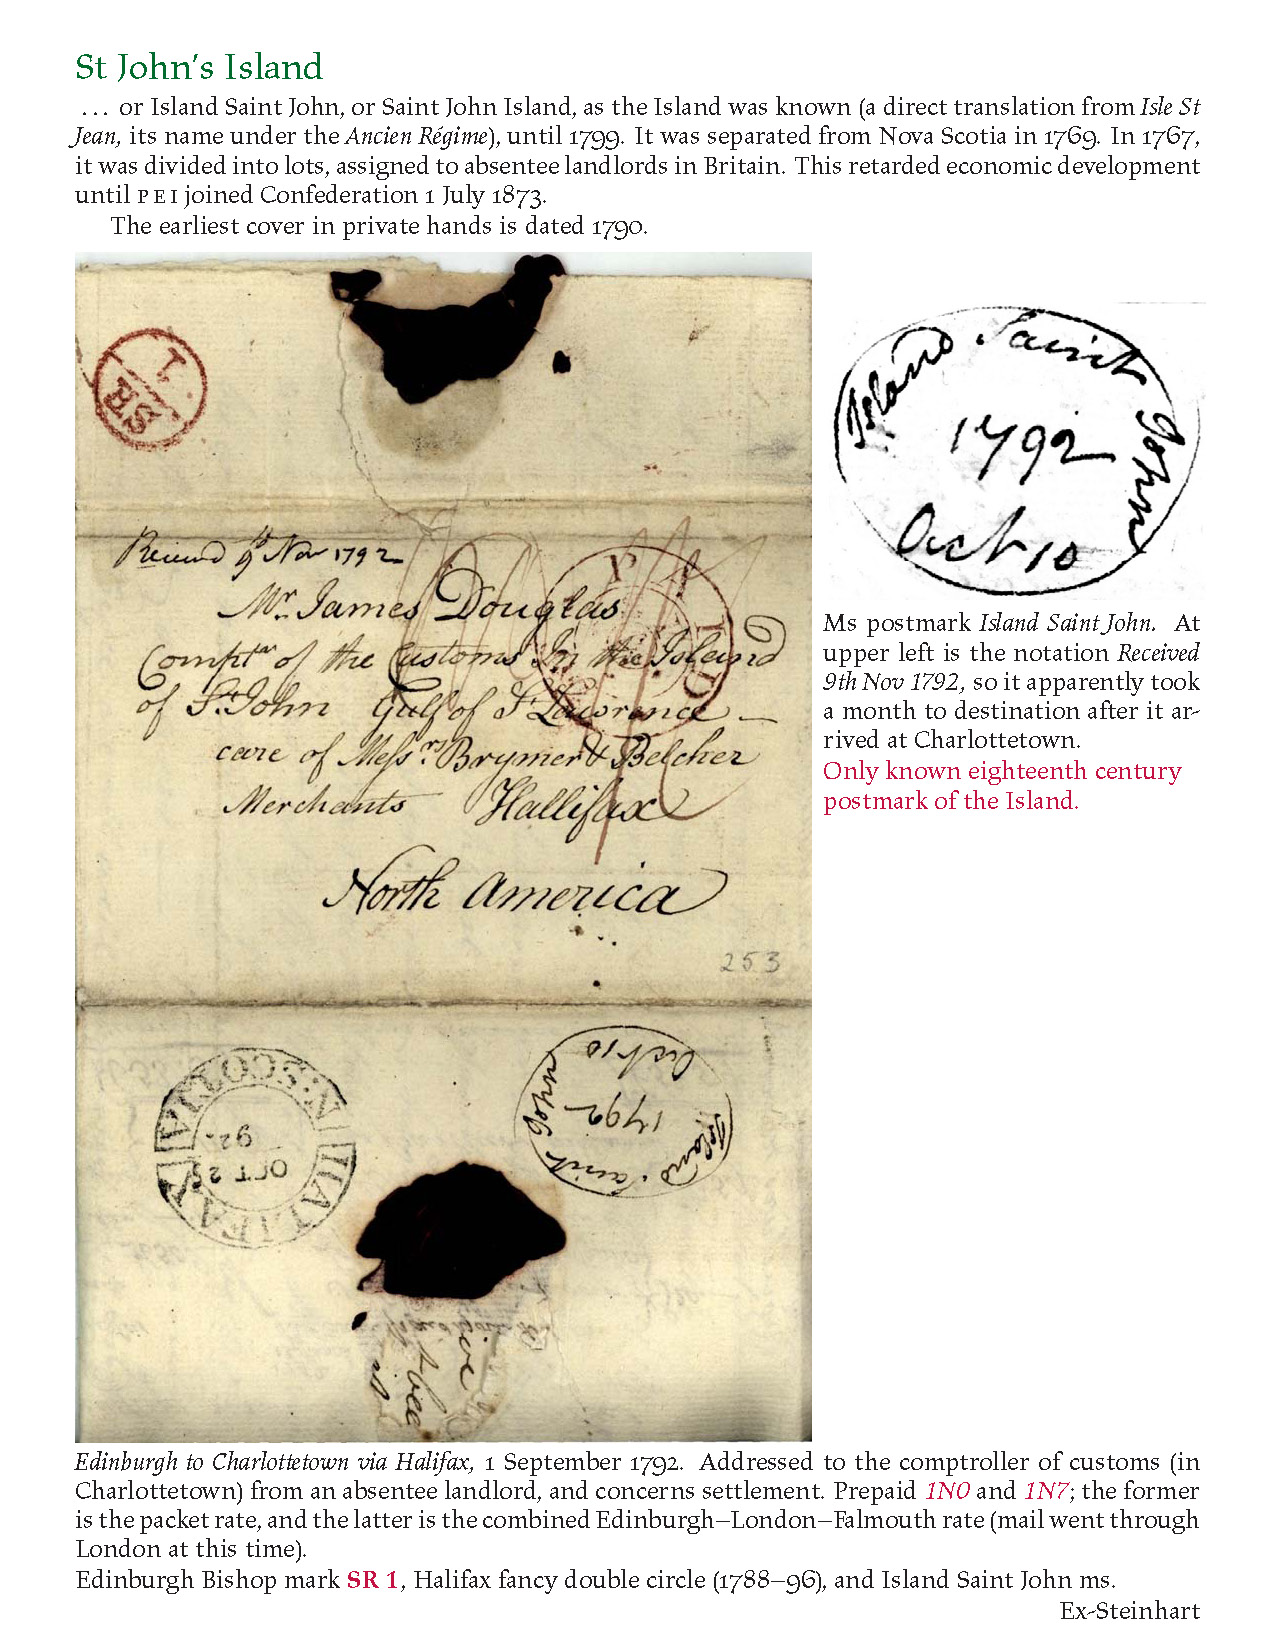 St John's Island
… or Island Saint John, or Saint John Island, as the Island was known (a direct translation from Isle St
Jean, its name under the Ancien Régime), until 1799. It was separated from Nova Scotia in 1769. In 1767,
it was divided into lots, assigned to absentee landlords in Britain. This retarded economic development
until PEI joined Confederation 1 July 1873.
The earliest cover in private hands is dated 1790.
1
SR
Received 9th Nov 1792
Mr. James Douglas
Comptr of the Customs In the Island
of St. John Gulf of St Lawrence —
care of Messrs Brymer & Belcher
Merchants Hallifax
North America
PAID
253
HALIFAX N:SCOTIA
OCT 2
92
Island Saint John
1792
Oct 10
Island Saint John
1792
Oct 10
Ms postmark Island Saint John. At
upper left is the notation Received
9th Nov 1792, so it apparently took
a month to destination after it ar-
rived at Charlottetown.
Only known eighteenth century
postmark of the Island.
Edinburgh to Charlottetown via Halifax, 1 September 1792. Addressed to the comptroller of customs (in
Charlottetown) from an absentee landlord, and concerns settlement. Prepaid 1N0 and 1N7; the former
is the packet rate, and the latter is the combined Edinburgh–London–Falmouth rate (mail went through
London at this time).
Edinburgh Bishop mark SR 1, Halifax fancy double circle (1788–96), and Island Saint John ms.
Ex-Steinhart